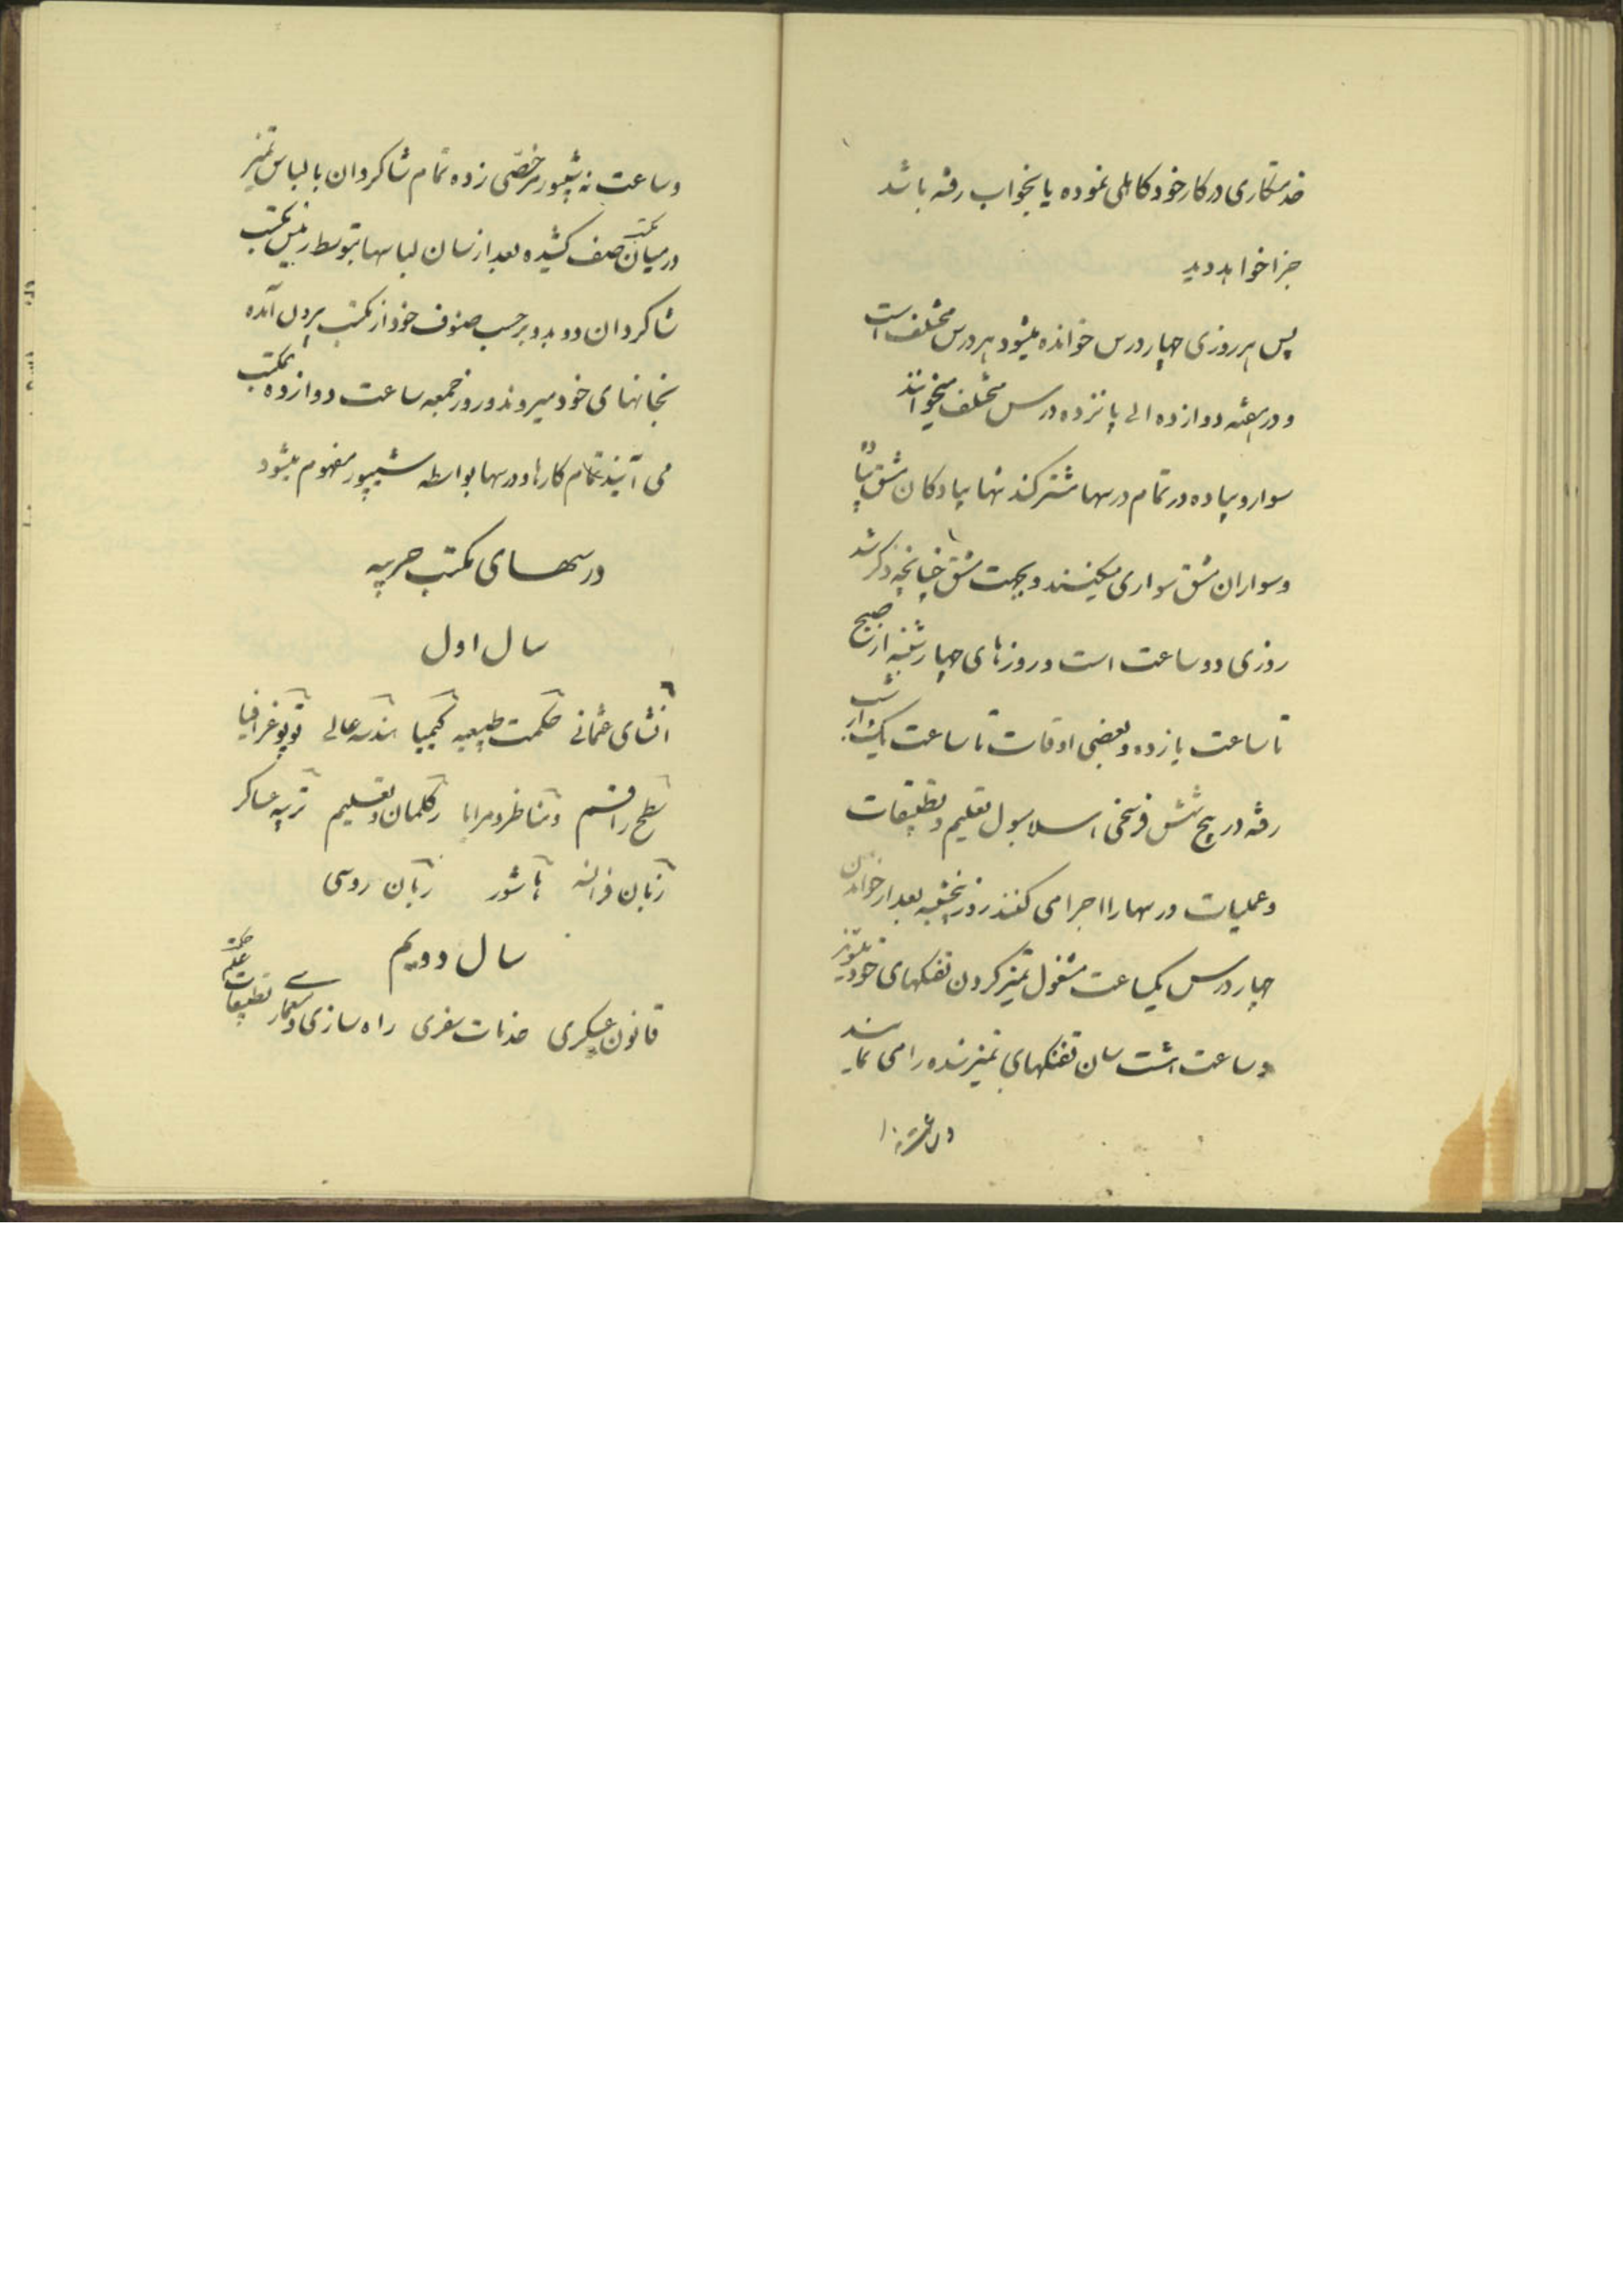 خدمتکاری در کار خود کاهلی نموده یا بخواب رفته باشد
جزا خواهد دید
پس هر روزی چهار درس خوانده میشود هر درس مختلف است
و در هفته دوازده الی پانزده درس مختلف میخوانند
سوار و پیاده در تمام درسها مشترکند تنها پیادکان مشق پیاده
و سواران مشق سواری میکنند و بجهت مشق چنانچه ذکر شد
روزی دو ساعت است و روزهای چهارشنبه از صبح
تا ساعت یازده و بعضی اوقات تا ساعت یک از شب
رفته در پنج شش فرسخی اسلامبول تعلیم و تطبیقات
و عملیات درسها را اجرا می کنند روز پنجشنبه بعد از خواندن
چهار درس یکساعت مشغول تمیز کردن تفنکهای خود
و ساعت هشت سان تفنکهای تمیز شده را می نمایند
و ساعت نه شیپور مرخصی زده تمام شاکردان با لباس تمیز
در میان مکتب صف کشیده بعد از سان لباسها بتوسط رئیس مکتب
شاکردان دو بدو بر حسب صنوف خود از مکتب بیرون آمده
بخانهای خود میروند و روز جمعه ساعت دوازده بمکتب
می آیند تمام کارها و درسها بواسطه شیپور مفهوم میشود
درسهای مکتب حربیه
سال اول
انشای عثمانی حکمت طبیعیه کیمیا هندسه عالی توپوغرافیا
سطح راقم و مناظر و مرایا و تعلیم تربیه عساکر
زبان فرانسه زبان روسی
سال دویم
قانون عسکری خدمات سفری راه سازی و معماری تطبیقات